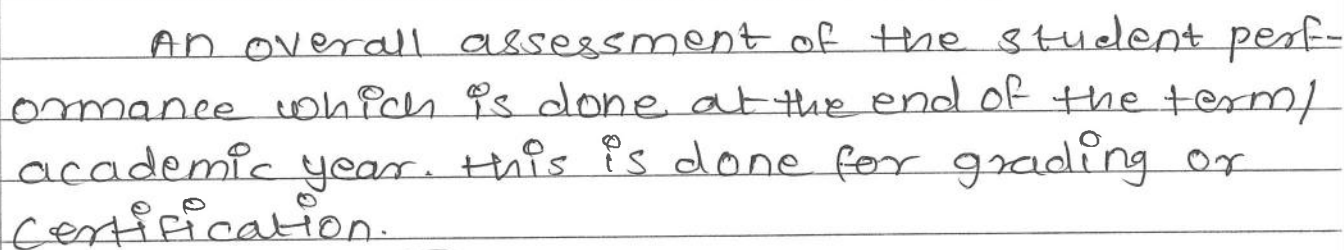 An overall assessment of the student perf-
ormance which is done at the end of the term/
academic year. this is done for grading or
Certification.